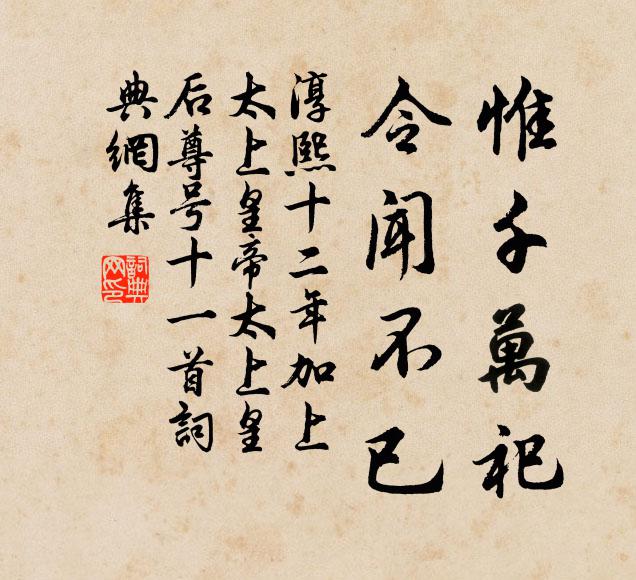 惟千萬祀
令聞不已
淳熙十二年加上
太上皇帝太上皇
后尊号十一首詞
典網集
詞典網印